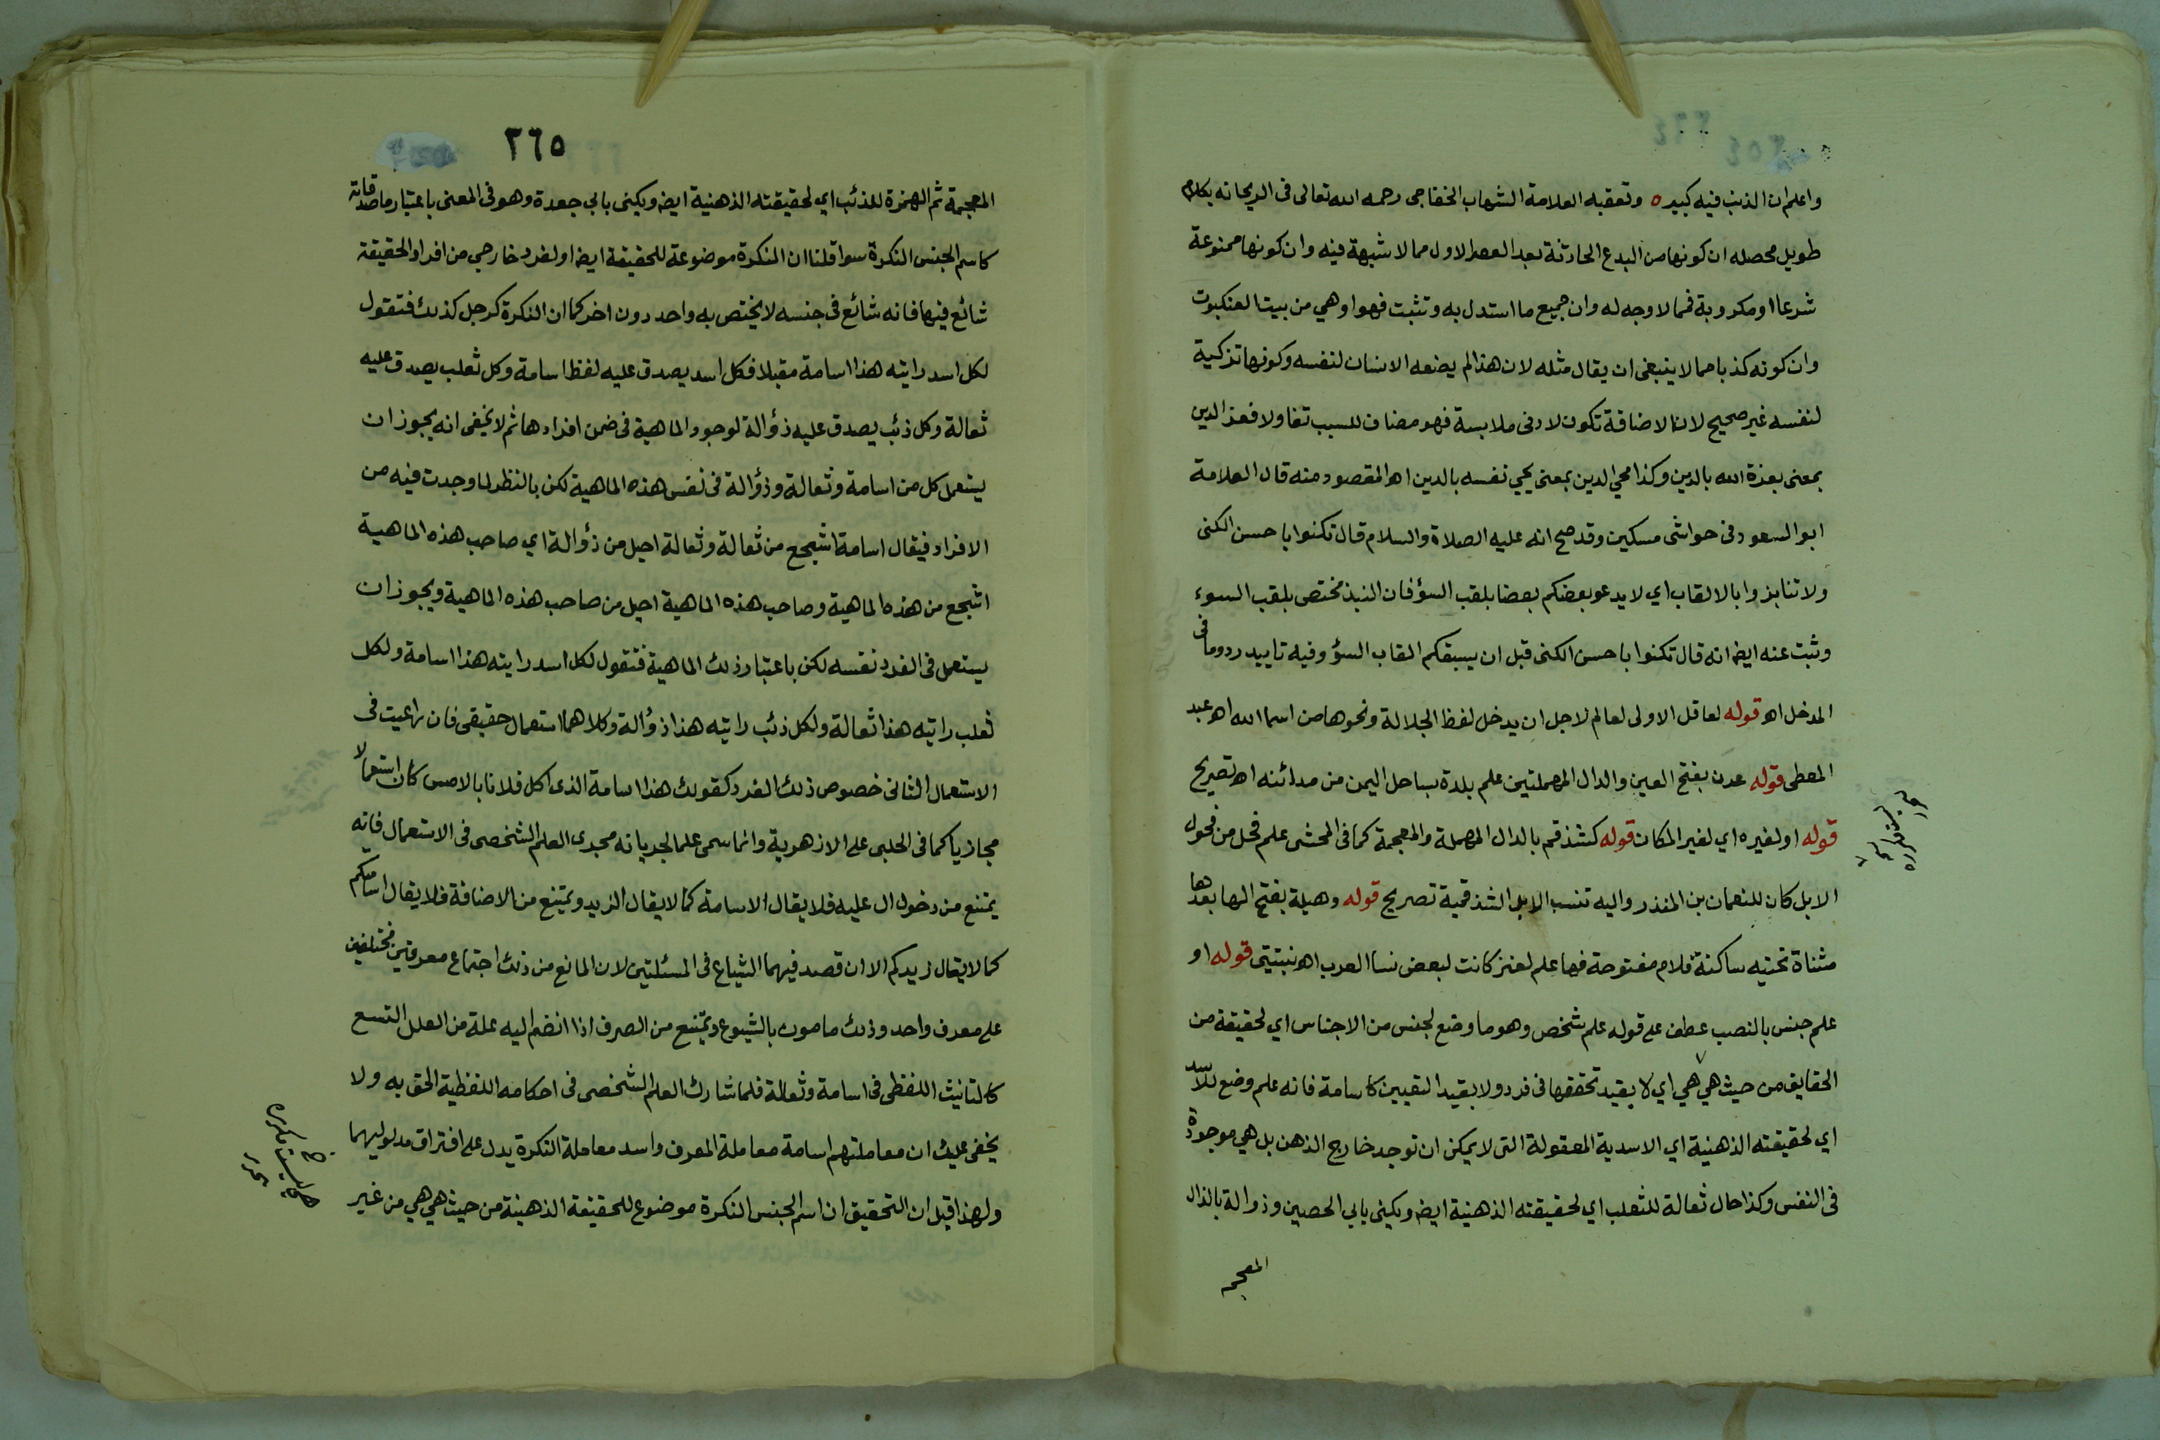 واعلم ان الذنب فيه كبيره وتعقبه العلامة الشهاب الخفاجى رحمه الله تعالى فى الريحانه بكلام
طويل محصله ان كونها من البدع الحادثة بعد العصر الاول مما لا شبهة فيه وان كونها ممنوعة
شرعا او مكروبة فمما لا وجه له وان جميع ما استدل به وتثبت فهو اوهي من بيت العنكبوت
وان كونه كذبا مما لا ينبغى ان يقال مثله لان هذا لم يضعه الانسان لنفسه وكونها تزكية
لنفسه غير صحيح لان الاضافة تكون لادنى ملابسة فهو مضاف للسبب تفاولا فعز الدين
بمعنى يعزه الله بالدين وكذا محي الدين بمعنى يحيي نفسه بالدين اهـ المقصود منه قال العلامة
ابو السعود فى حواشى مسكين وقد صح انه عليه الصلاة والسلام قال تكنوا باحسن الكنى
ولا تنابزوا بالالقاب اي لا يدعو بعضكم بعضا بلقب السؤ فان النبذ مختص بلقب السوء
وثبت عنه ايضا انه قال تكنوا باحسن الكنى قبل ان يسبقكم القاب السؤ وفيه تاييد رد وما فى
المدخل اهـ قوله لعاقل الاولى لعالم لاجل ان يدخل لفظ الجلالة ونحوها من اسما الله اهـ عبد
المعطى قوله عدن بفتح العين والدال المهملتين علم بلدة بساحل اليمن من مدائنه اهـ تصريح
قوله او لغيره اي لغير المكان قوله كشذقم بالدال المهملة والمعجمة كما فى المحشى علم فحل من فحول
الابل كان للنعمان بن المنذر واليه تنسب الابل الشذقمية تصريح قوله وهيلة بفتح الها بعدها
مثناة تحتيه ساكنة فلام مفتوحة فها علم لعنز كانت لبعض نسا العرب اهـ نبتيتى قوله او
علم جنس بالنصب عطف على قوله علم شخص وهو ما وضع لجنس من الاجناس اي لحقيقة من
الحقايق من حيث هي هي اي لا بقيد تحققها فى فرد ولا بقيد التعيين كاسامة فانه علم وضع للاسد
اي لحقيقته الذهنية اي الاسدية المعقولة التى لا يمكن ان توجد خارج الذهن بل هي موجودة
فى النفس وكذا حال ثعالة للثعلب اي لحقيقته الذهنية ايضا ويكنى بابي الحصين وذوالة بالذال
المعجمه
٣٦٥
المعجمة ثم الهمزة للذئب اي لحقيقته الذهنية ايضا ويكنى بابي جعدة وهو فى المعنى باعتبار ماصدقاته
كاسم الجنس النكرة سوا قلنا ان النكرة موضوعة للحقيقة ايضا او لفرد خارجي من افراد الحقيقة
شائع فيها فانه شائع فى جنسه لا يختص به واحد دون اخر كما ان النكرة كرجل كذلك فتقول
لكل اسد رايته هذا اسامة مقبلا فكل اسد يصدق عليه لفظ اسامة وكل ثعلب يصدق عليه
ثعالة وكل ذئب يصدق عليه ذؤالة لوجود الماهية فى ضمن افرادها ثم لا يخفى انه يجوز ان
يستعمل كل من اسامة وثعالة وذؤالة فى نفس هذه الماهية لكن بالنظر لما وجدت فيه من
الافراد فيقال اسامة اشجع من ثعالة وثعالة احيل من ذؤالة اي صاحب هذه الماهية
اشجع من هذه الماهية وصاحب هذه الماهية احيل من صاحب هذه الماهية ويجوز ان
يستعمل فى الفرد نفسه لكن باعتبار ذلك الماهية فتقول لكل اسد رايته هذا اسامة ولكل
ثعلب رايته هذا ثعالة ولكل ذئب رايته هذا ذؤالة وكلاهما استعمال حقيقى فان راعيت فى
الاستعمال الثانى خصوص ذلك الفرد كقولك هذا اسامة الذى اكل فلانا بالامس كان استعمالا
مجازيا كما فى الحلبى على الازهرية وانما سمى علما لجريانه مجرى العلم الشخصى فى الاستعمال فانه
يمتنع من دخول ال عليه فلا يقال الاسامة كما لا يقال الزيد ويمتنع من الاضافة فلا يقال اسامتكم
كما لا يقال زيدكم الا ان قصد فيهما الشياع فى المسئلتين لان المانع من ذلك اجتماع معرفتين مختلفين
على معرف واحد وذلك مامون بالشيوع ويمتنع من الصرف اذا انضم اليه علة من العلل التسع
كالتانيث اللفظى فى اسامة وثعالة فلما شارك العلم الشخصى فى احكامه اللفظية الحق به ولا
يخفى عليك ان معاملتهم اسامة معاملة المعرف واسد معاملة النكرة يدل على افتراق مدلوليهما
ولهذا قيل ان التحقيق ان اسم الجنس النكرة موضوع للحقيقة الذهنية من حيث هي هي من غير